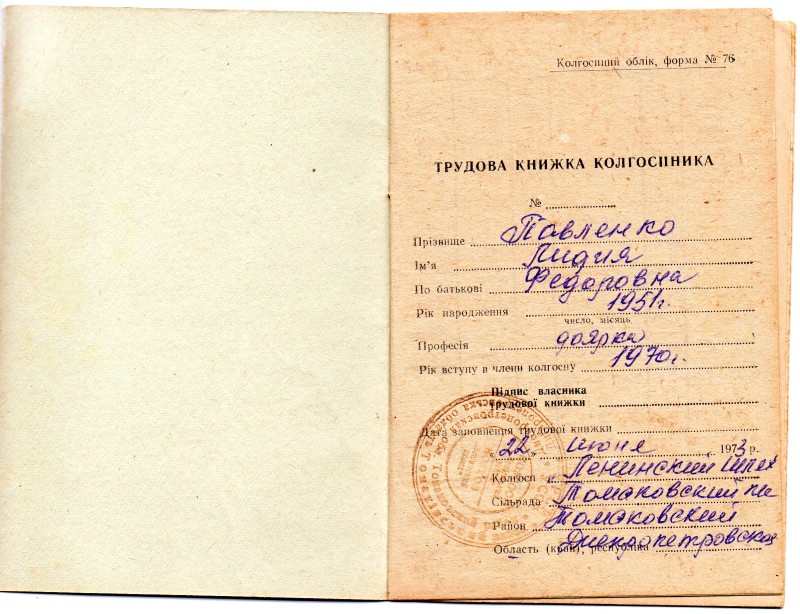 Колгоспний облік, форма № 76
ТРУДОВА КНИЖКА КОЛГОСПНИКА
№
Прізвище Павленко
Ім'я Лидия
По батькові Федоровна
Рік народження 1951г.
число, місяць
Професія доярка
Рік вступу в члени колгоспу 1970г.
Підпис власника
трудової книжки
Дата заповнення трудової книжки
„22„ июня 1973 р.
Колгосп к. Ленинский Шлях
Сільрада Томаковский
Район Томаковский
Область (край), республіка Днепропетровская